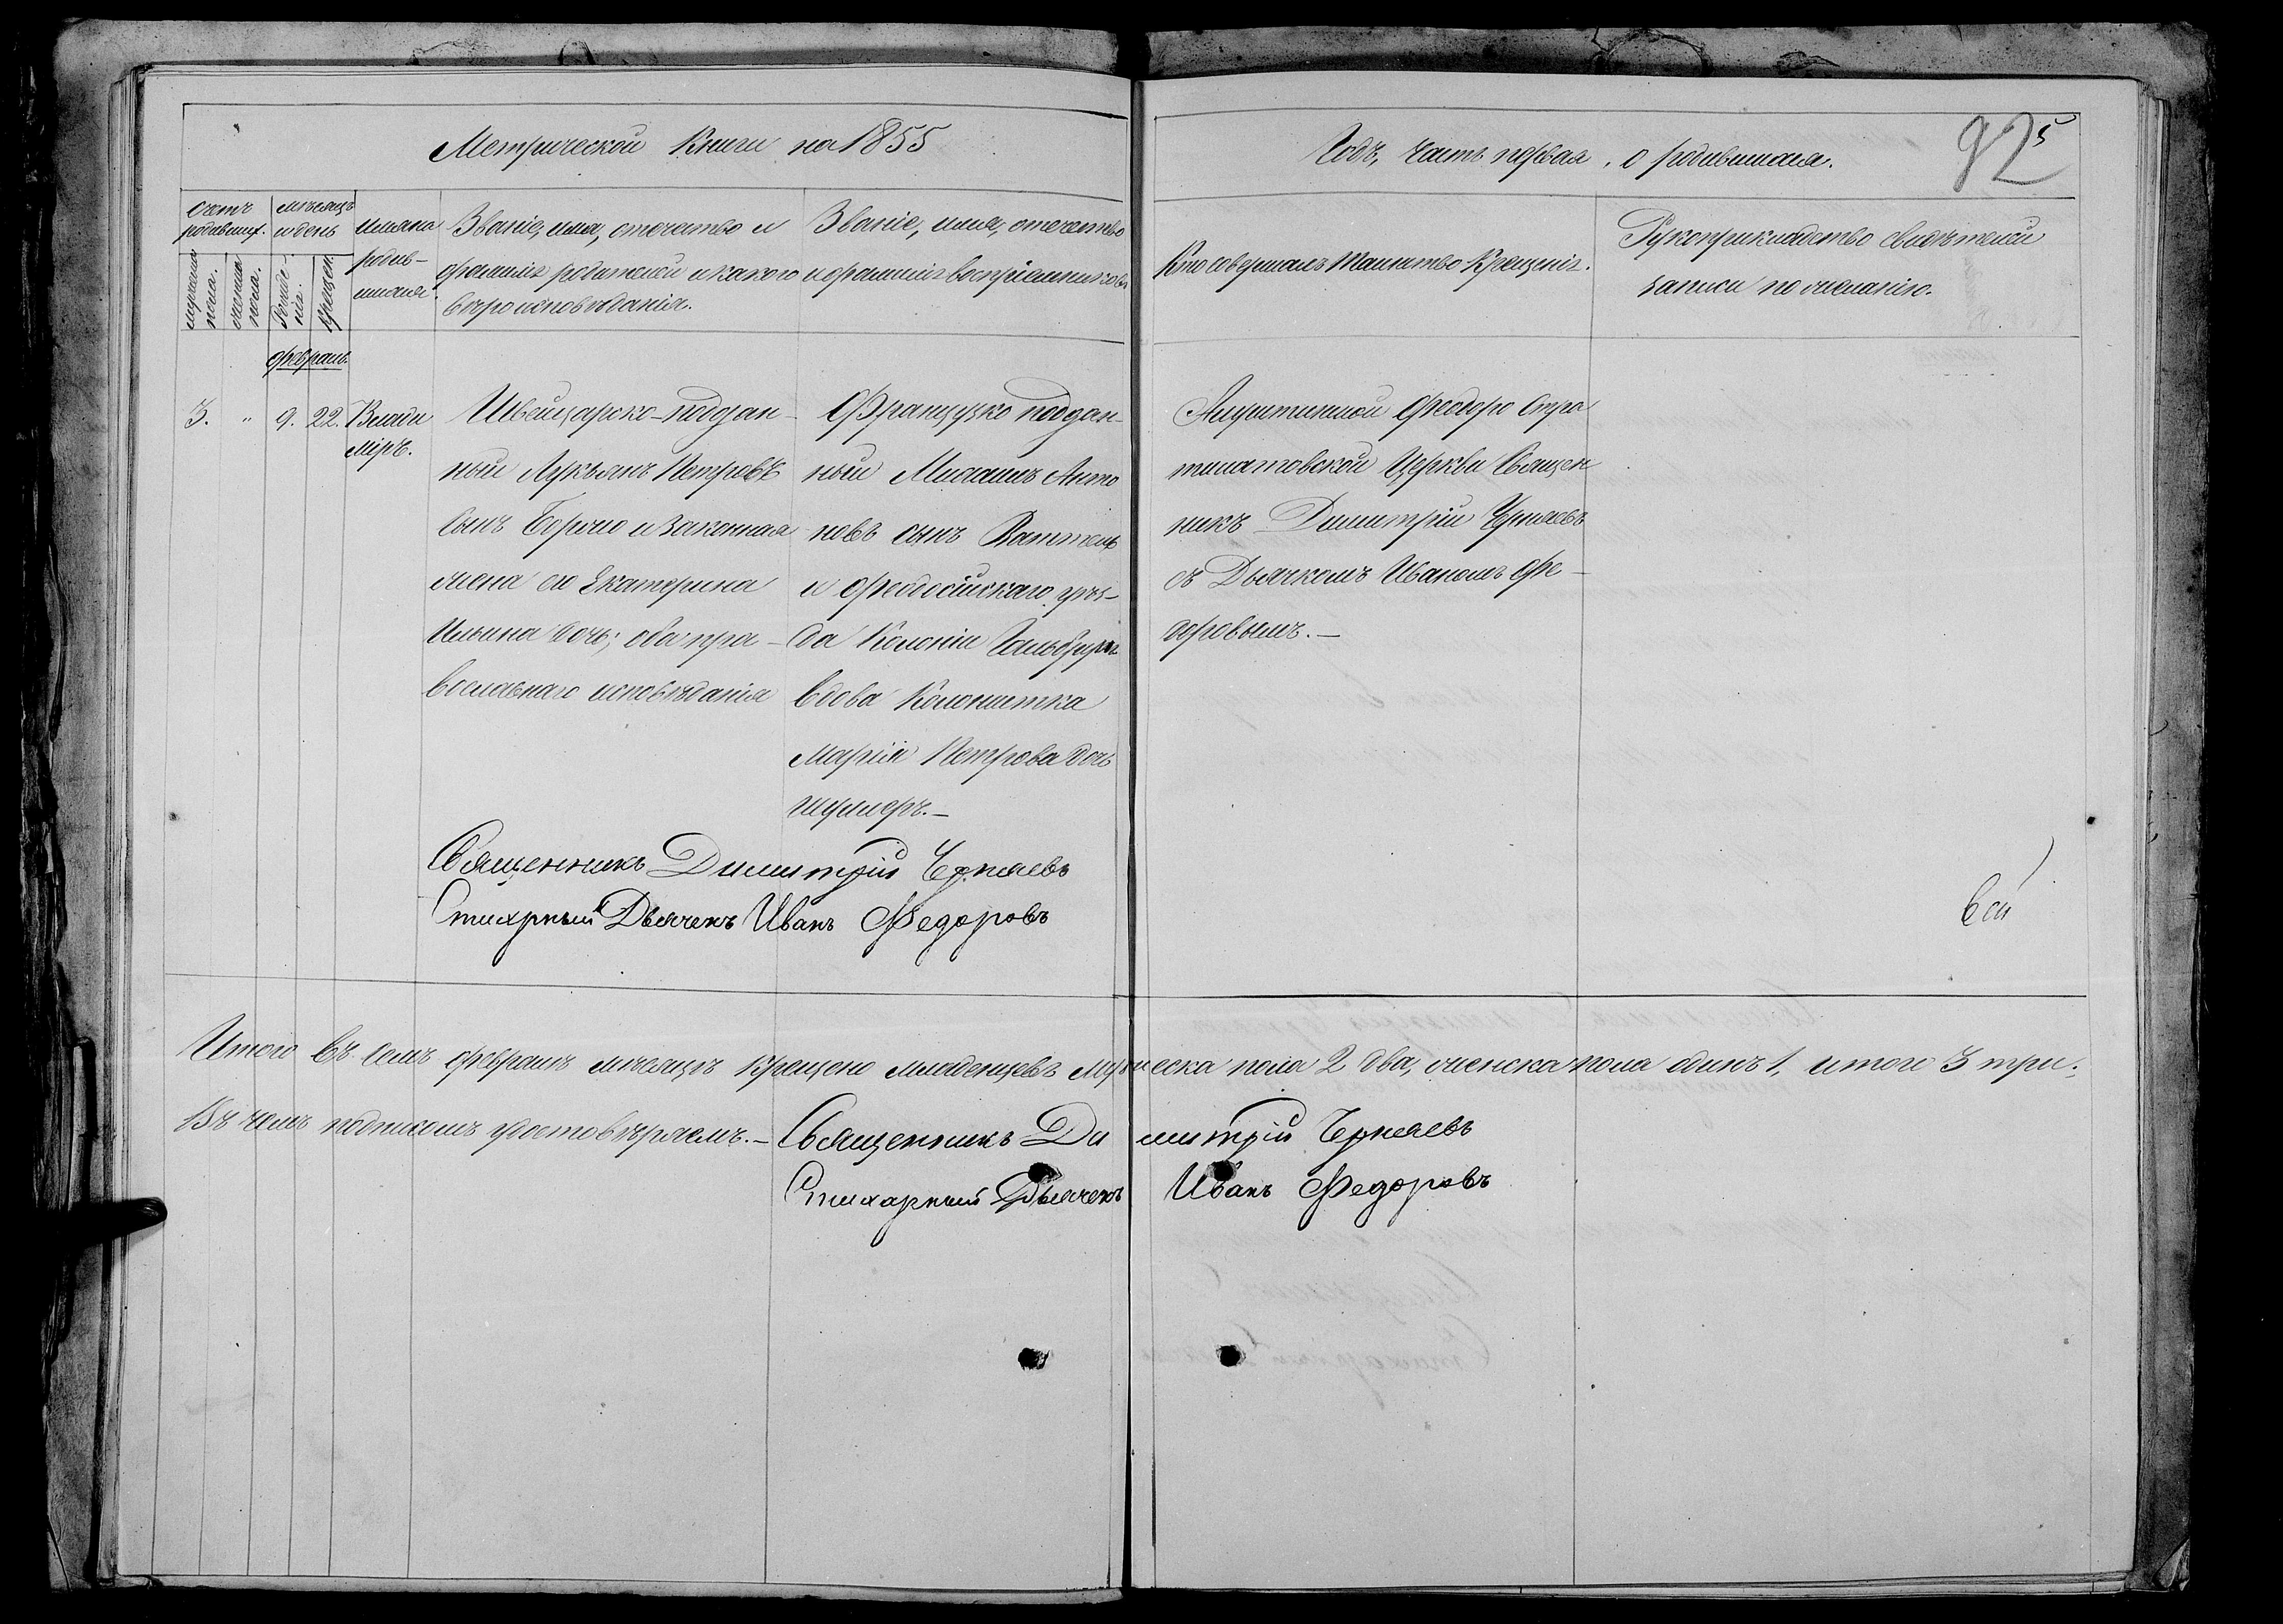 Метрической Книги на 1855
Годъ, часть первая, о родившихся.
92
5
Счетъ родивших.
мужеска пола.
женска пола.
мѣсяцъ и день
Рожде-нія.
Крещен.
имяна родив-шихся.
Званіе, имя, отечество и
фамилія родителей и какого
вѣроисповѣданія.
Званіе, имя, отечество
и фамилія воспріемниковъ
Кто совершалъ таинство Крещенія.
Рукоприкладство свидѣтелей
записи по желанію.
февраль.
3. " 9. 22. Влади
міръ.
Швейцарско-поддан-
ный Лукьянъ Петровъ
сынъ и законная
жена его Екатерина
Ильина дочь; оба пра-
вославнаго исповѣданія
Французко поддан-
ный Михаилъ Анто
новъ сынъ Ваттель
и Феодосійскаго уѣз-
да Колоніи
вдова Колонистка
Марія Петрова дочь
Шумеръ.—
Феодоро Стра
тилатовской Церкви Священ
никъ Димитрій Черняевъ
съ Дьячкомъ Иваномъ Фе-
доровымъ.—
Священникъ Димитрій Черняевъ
Стихарный Дьячекъ Иванъ Федоровъ
вой
Итого въ семъ февралѣ мѣсяцѣ крещено младенцевъ мужеска пола 2 два, женска пола одинъ 1, итого 3 три.
Въ чемъ подписомъ удостовѣряемъ.— Священникъ Димитрій Черняевъ
Стихарный Дьячекъ Иванъ Федоровъ